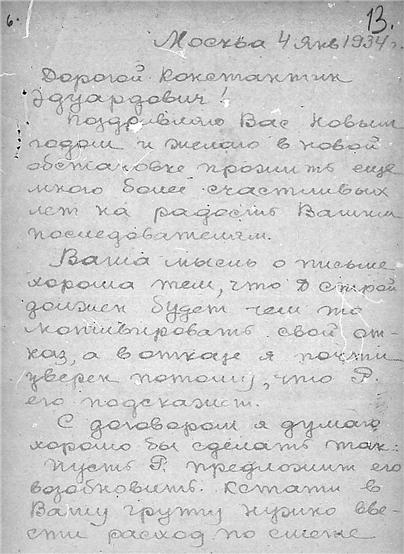 6.
13.
Москва 4 Янв 1934 г.
Дорогой Константин
Эдуардович!
Поздравляю Вас новым
годом и желаю в новой
обстановке прожить еще
много более счастливых
лет на радость Вашим
последователям.
Ваша мысль о письме
хороша тем, что Д строй
должен будет чем то
мотивировать свой от-
каз, а в отказе я почти
уверен потому, что Р.
его подскажет.
С договором я думаю
хорошо бы сделать так:
Пусть Р. предложит его
возобновить. Кстати в
Вашу группу нужно вве-
сти расход по смене